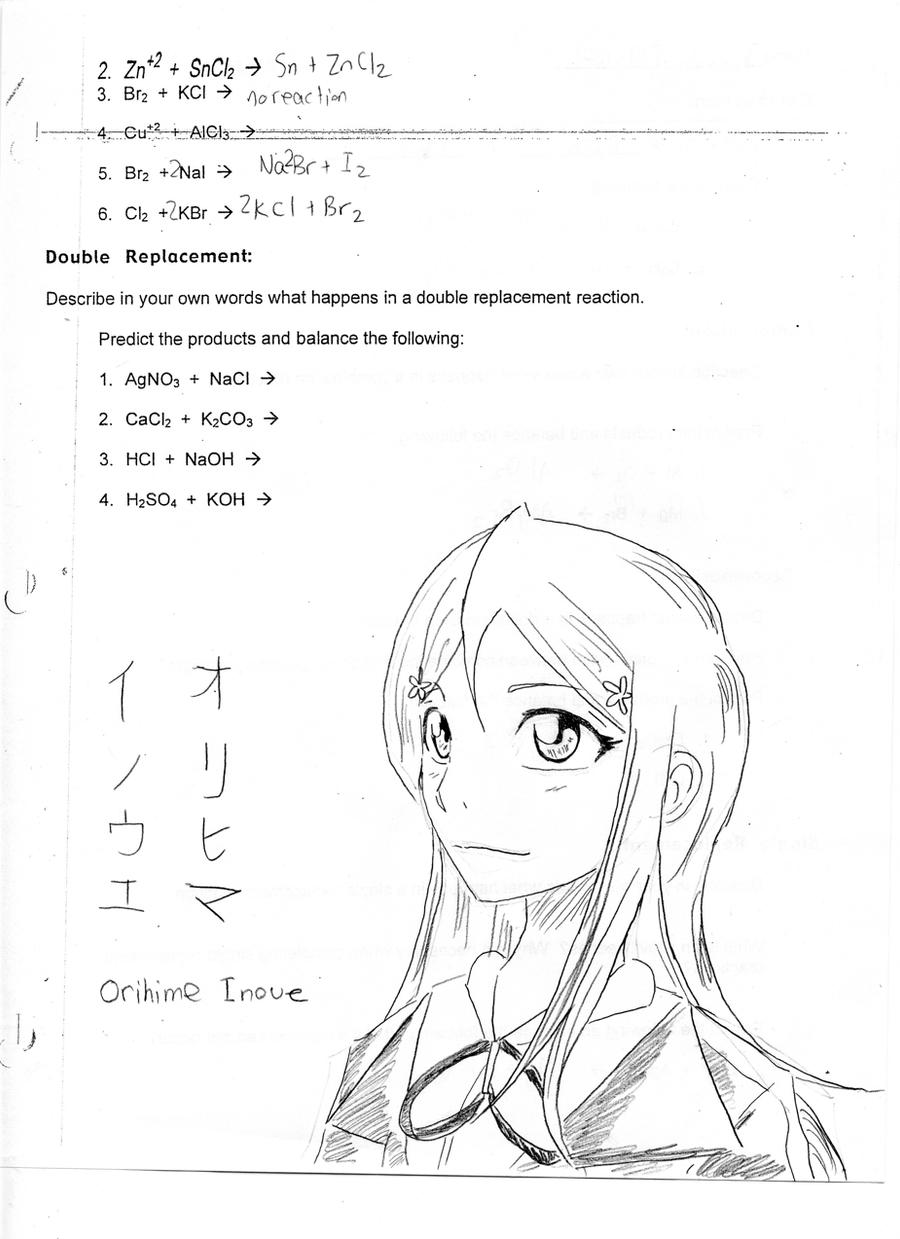 2. Zn⁺² + SnCl₂ → Sn + ZnCl₂
3. Br₂ + KCl → no reaction
4. Cu⁺² + AlCl₃ →
5. Br₂ +2NaI → Na²Br + I₂
6. Cl₂ +2KBr → 2KCl + Br₂
Double Replacement:
Describe in your own words what happens in a double replacement reaction.
Predict the products and balance the following:
1. AgNO₃ + NaCl →
2. CaCl₂ + K₂CO₃ →
3. HCl + NaOH →
4. H₂SO₄ + KOH →
オリヒマ
イノウエ
Orihime Inoue